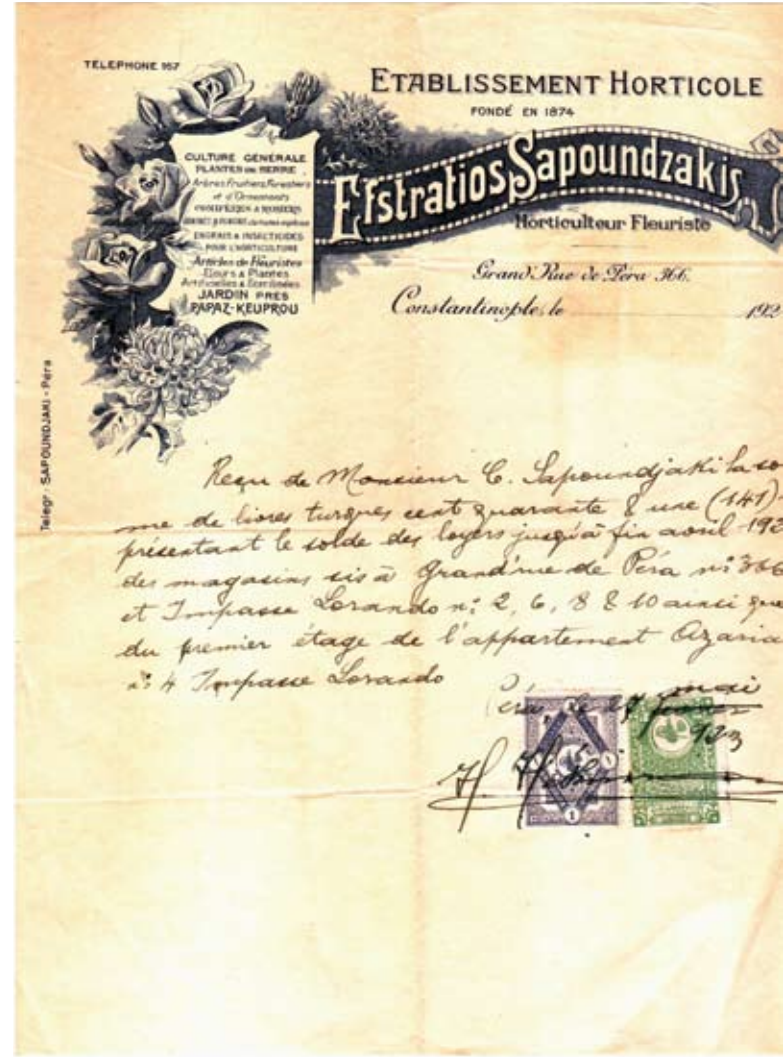 TELEPHONE 167
ETABLISSEMENT HORTICOLE
FONDÉ EN 1874
Efstratios Sapoundzakis
Horticulteur Fleuriste
CULTURE GÉNÉRALE
PLANTES DE SERRE
Arbres Fruitiers, Forestiers
et d'Ornements
CONIFÈRES & ROSIERS
ENGRAIS & INSECTICIDES
POUR L'HORTICULTURE
Articles de Fleuristes
Fleurs & Plantes
Artificielles & Stérilisées
JARDIN PRÈS
PAPAZ-KEUPROU
Grand'Rue de Péra 366.
Constantinople, le 192
Telegr: SAPOUNDJAKI - Péra
Reçu de Monsieur C. Sapoundjaki la so
me de livres turques cent quarante & une (141)
présentant le solde des loyers jusqu'à fin avril 192
des magasins sis à Grand'rue de Péra nº 366
et Impasse Lorando nº 2, 6, 8 & 10 ainsi que
du premier étage de l'appartement Azaria
nº 4 Impasse Lorando
Péra, le 27 mai
923
1